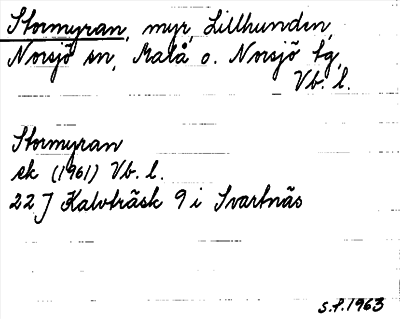 Stormyran, myr, Lillhunden,
Norsjö sn, Malå o. Norsjö tg,
Vb. l.
Stormyran
ek (1961) Vb. l.
22J Kalvträsk 9 i Svartnäs
s.f. 1963